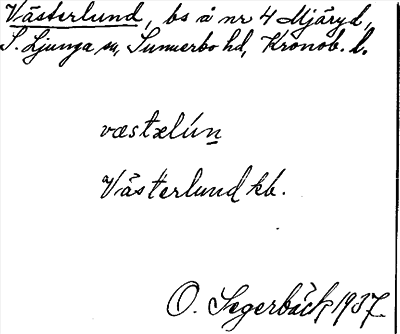 Västerlund, bs å nr 4 Mjäryd,
S. Ljunga sn, Sunnerbo hd, Kronob. l.
væstælún
Västerlund kb.
O. Segerbäck 1937